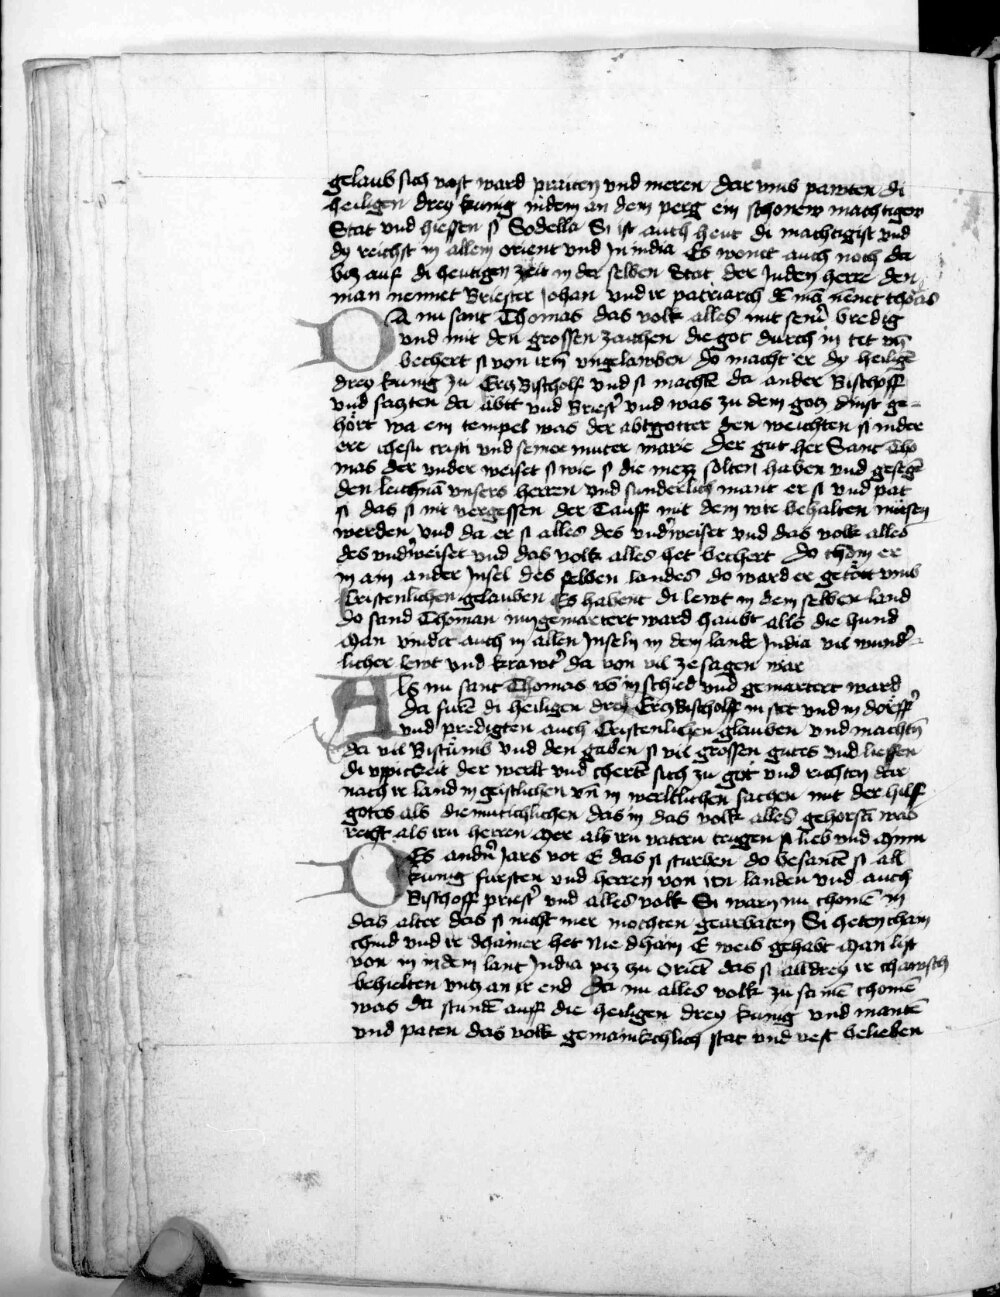 gelaub sich vast ward praiten vnd meren dar vmb pawten di
heiligen drey kunig in dem an dem perg ein schonew machtigew
Stat vnd hiessen si Sodella Si ist auch heut di machtigist vnd
dy reichst in allem orient vnd In india Es wont auch noch da
vncz auf di hewtigen zeit in der selben Stat der Inden herre den
man nennet Briester Johan vnd ir patriarch de͞ ma͞ nēnet thōas
DA nu sant Thomas das volk alles mit seiner bredig
vnd mit den grossen zaichen die got durch in tet vn͞
bechert si von irm vngelawben do macht er dy heilige͞
drey kunig zu ErczBischolf vnd si machte͞ da ander Bischoff
vnd saczten da abtt vnd Briester vnd was zu dem gocz dinst ge-
hört wa ein tempel was der abtgotter den weichten si in der
ere ihesu cristi vnd seiner muter marie Der gut her Sant Tho
mas der vnder weiset si wie si die mezz solten haben vnd gesege͞
den leichna͞ vnsers herren vnd sunderlich mant er si vnd pat
si das si nit vergessen der Tauff mit dem wir behalten müssen
werden vnd da er si alles des vnderweiset vnd das volk alles
des vnderweiset vnd das volk alles het bechert do chom er
in ain ander Insel des selben landes do ward er getött vmb
Cristenlichen gelauben Es habent di lewt in dem selben land
do sand Thoman inn gemartert ward haubt alls die hund
Man vindet auch in allen Inseln in dem lande India vil wunder-
licher lewt vnd krawter da von vil ze sagen war
ALs nu sant Thomas vo͞ in schied vnd gemartert ward
da furn di heiligen drey ErczBischolff in stet vnd in dorffer
vnd predigten auch Cristenlichen glauben vnd machtn͞
da vil Bistumb vnd den gaben si vil grossen gutes vnd liessen
di vppickeit der werlt vnd cherte͞ sich zu got vnd richten dar
nach ir land in geistlichen vn͞ in werltlichen sachen mit der hilff
gotes als diemutichlichen das in das volk alles gehorsa͞ was
recht als irn herren Mer als irn vatern trugen si lieb vnd Mynn
DEs andern Jars vor E das si sturben do besante͞ si all
kunig fursten vnd herren von irn landen vnd auch
Bischoff priester vnd alles volk Si warn nu chome͞ in
das alter das si nicht mer mochten gearbaten Si heten cham
chind vnd ir dhainer het nie dhain E weib gehabt Man list
von in in dem lant India piz zu Orient das si all drey ir chawsch
behielten vncz an ir end Da nu alles volk zu samē chome͞
was da stunde͞ auff die heiligen drey kunig vnd mante͞
vnd paten das volk gemainkchlich stat vnd vest beleiben